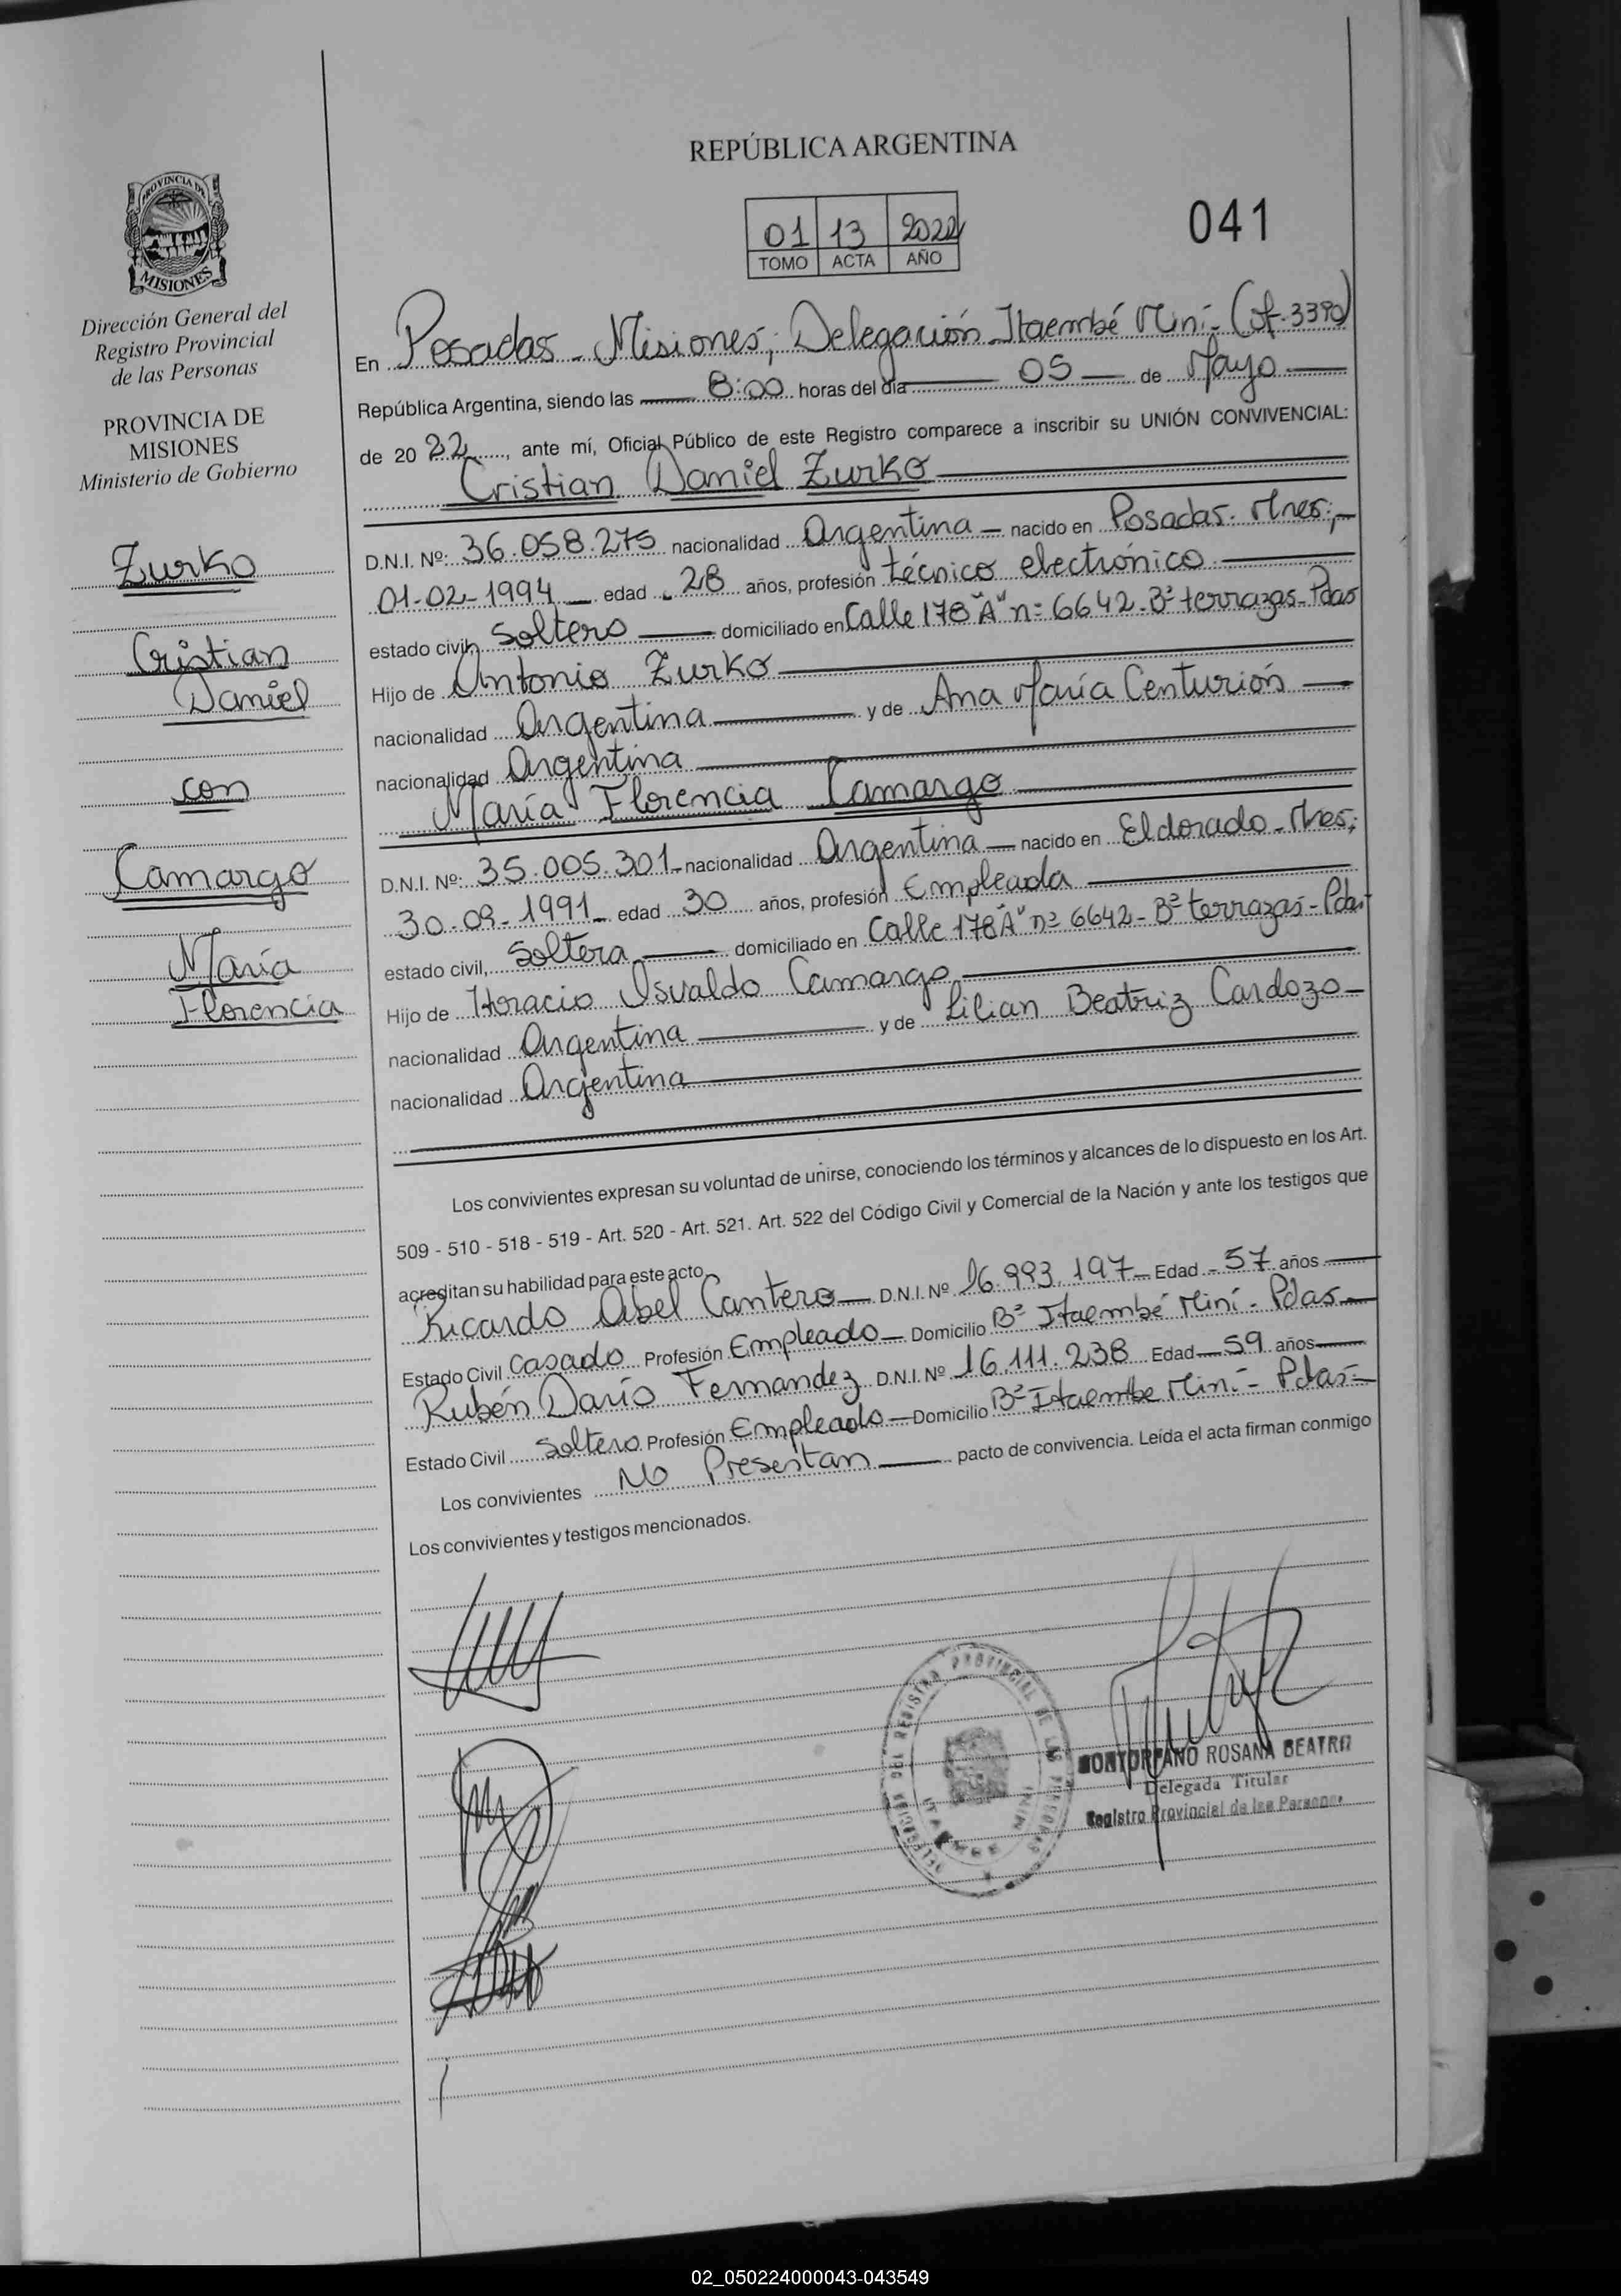 REPÚBLICA ARGENTINA
01 13 2022
TOMO ACTA AÑO
041
PROVINCIA DE
MISIONES
Dirección General del
Registro Provincial
de las Personas
PROVINCIA DE
MISIONES
Ministerio de Gobierno
Zurko
Cristian
Daniel
con
Camargo
María
Florencia
En Posadas - Misiones; Delegación Itaembé Miní - (of. 3390)
República Argentina, siendo las 8:00 horas del día 05 de Mayo
de 20 22, ante mí, Oficial Público de este Registro comparece a inscribir su UNIÓN CONVIVENCIAL:
Cristian Daniel Zurko
D.N.I. Nº: 36.058.275 nacionalidad Argentina nacido en Posadas. Mnes;
01-02-1994 edad 28 años, profesión técnico electrónico
estado civil, Soltero domiciliado en Calle 178 "A" nº 6642 - Bº terrazas - Pdas
Hijo de Antonio Zurko
nacionalidad Argentina y de Ana María Centurión
nacionalidad Argentina
María Florencia Camargo
D.N.I. Nº: 35.005.301 nacionalidad Argentina nacido en Eldorado - Mnes;
30-09-1991 edad 30 años, profesión Empleada
estado civil, Soltera domiciliado en Calle 178 "A" nº 6642 - Bº terrazas - Pdas
Hijo de Horacio Osvaldo Camargo
nacionalidad Argentina y de Lilian Beatriz Cardozo
nacionalidad Argentina
Los convivientes expresan su voluntad de unirse, conociendo los términos y alcances de lo dispuesto en los Art.
509 - 510 - 518 - 519 - Art. 520 - Art. 521. Art. 522 del Código Civil y Comercial de la Nación y ante los testigos que
acreditan su habilidad para este acto
Ricardo Abel Cantero D.N.I. Nº 16.993.197 Edad 57 años
Estado Civil Casado Profesión Empleado Domicilio Bº Itaembé Miní - Pdas
Rubén Darío Fernandez D.N.I. Nº 16.111.238 Edad 59 años
Estado Civil Soltero Profesión Empleado Domicilio Bº Itaembe Miní - Pdas
Los convivientes No Presentan pacto de convivencia. Leída el acta firman conmigo
Los convivientes y testigos mencionados.
MONTORFANO ROSANA BEATRIZ
Delegada Titular
Registro Provincial de las Personas
02_050224000043-043549